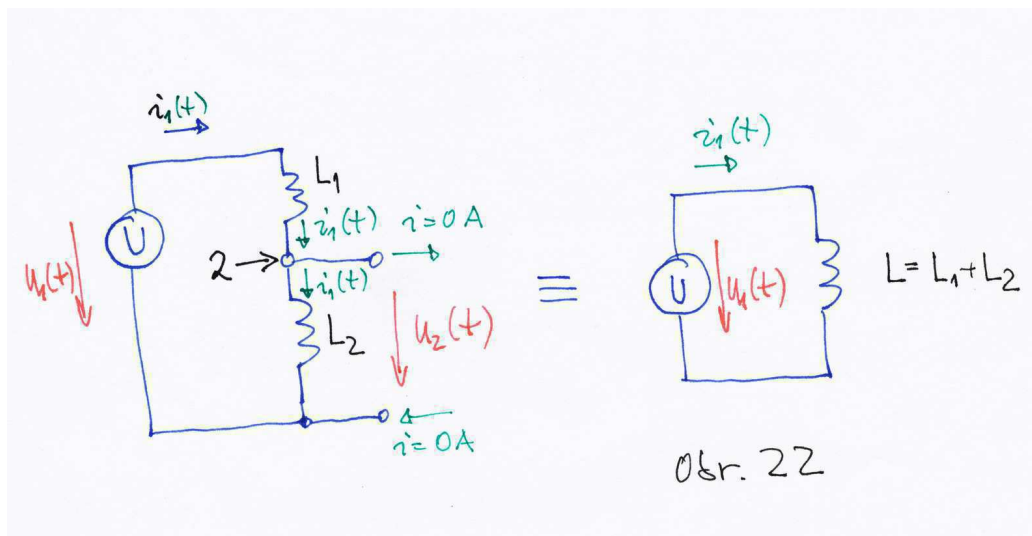 i₁(t)
L₁
i₁(t)
i=0A
U
2
i₁(t)
u₁(t)
L₂
u₂(t)
i=0A
≡
i₁(t)
U
u₁(t)
L=L₁+L₂
Obr. 22